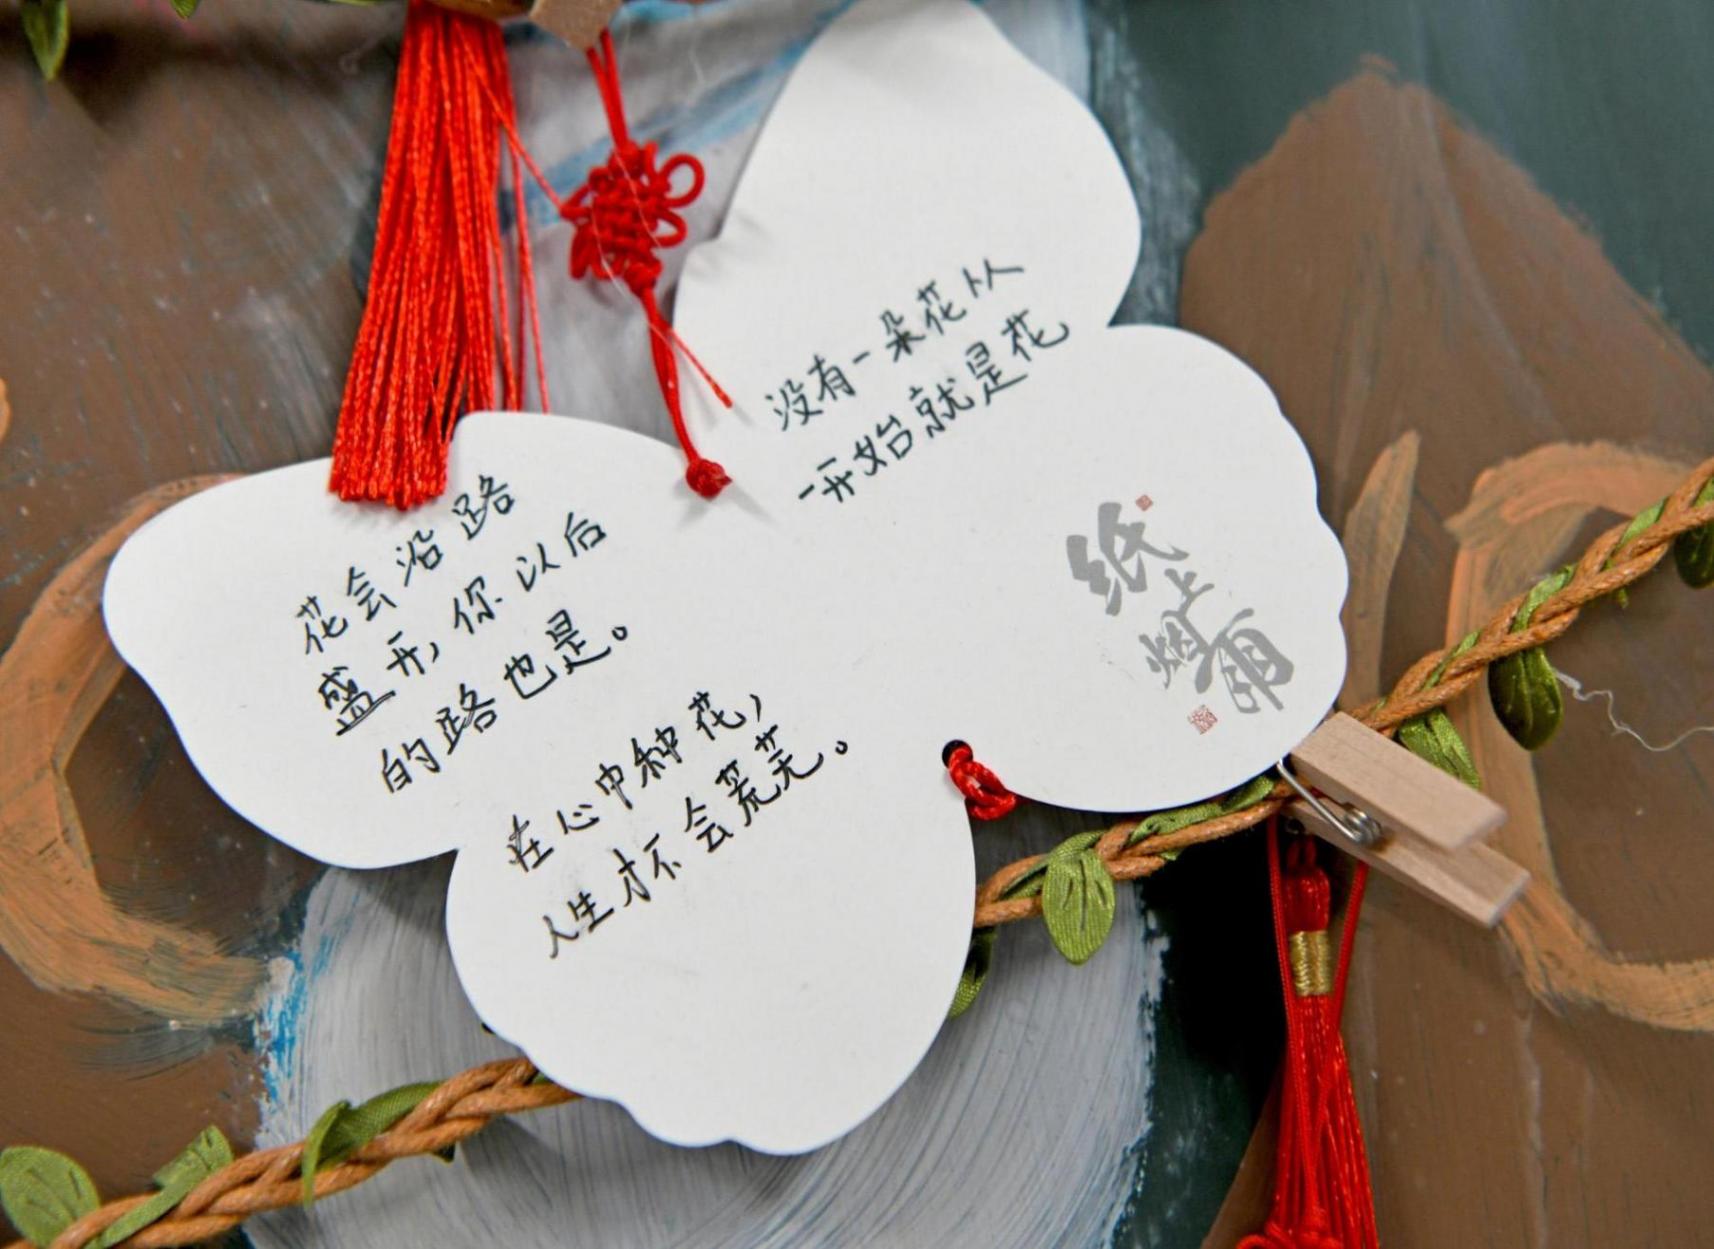 没有一朵花从
一开始就是花
花会沿路
盛开，你以后
的路也是。
在心中种花，
人生才不会荒芜。
纸上
烟雨